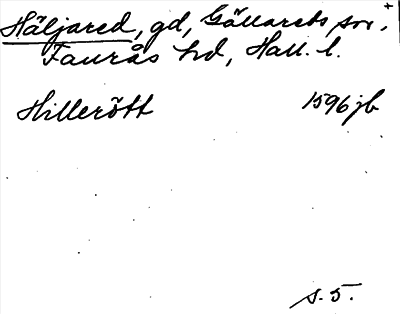 Häljared, gd, Gällareds sn. +
Faurås hd, Hall. l.
Hillerött 1596 jb
s. 5.